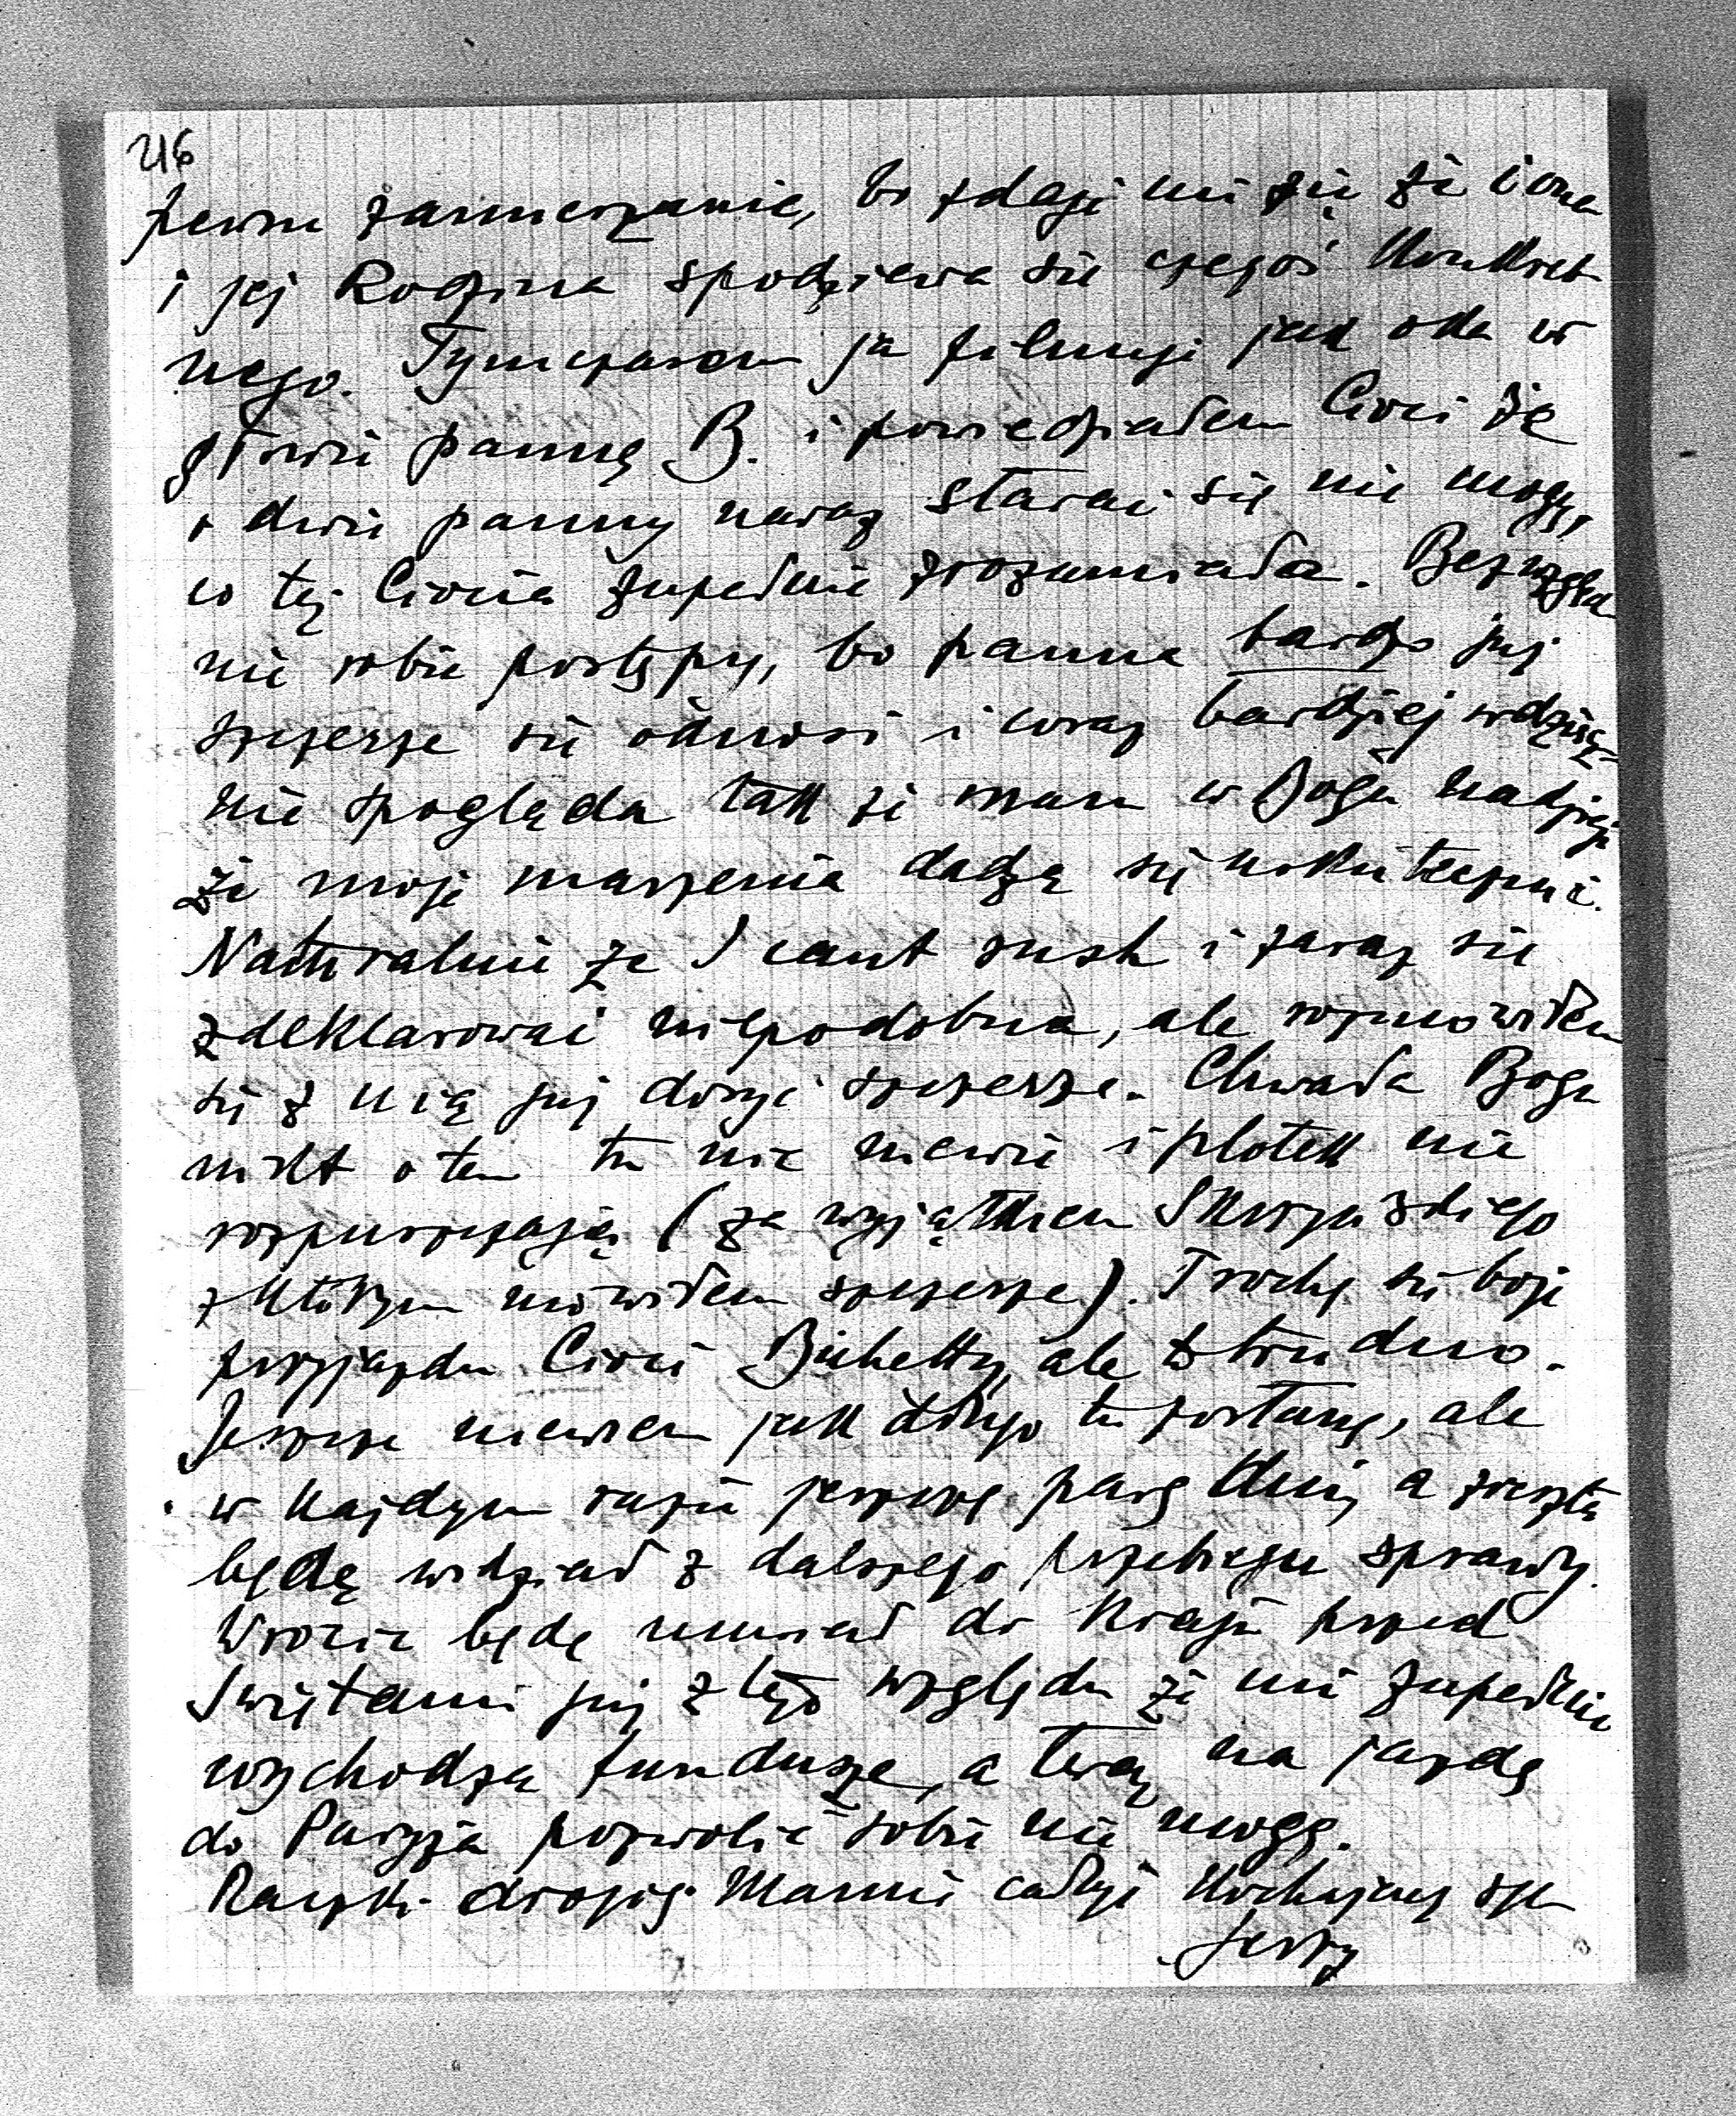 216
pewne zamierzanie, bo zdaje mi się że i ona
i jej Rodzina spodziewa się czegoś konkret-
nego. Tymczasem ja pilnuję jak oka w
głowie pannę B. i powiedziałem Cioci że
o dwie panny naraz starać się nie mogę,
co też Ciocia zupełnie zrozumiała. Bezwzględ
nie robię postępy, bo panna bardzo już
szczerze się odnosi i coraz bardziej wdzięcz-
nie spogląda tak że mam w Bogu nadzieję
że moje marzenia dadzą się uskutecznić.
Naturalnie że I cant rush i zaraz się
zdeklarować niepodobna, ale rozmówiłem
się z nią już dosyć szczerze. Chwała Bogu
nikt o tem tu nic niewie i plotek nie
rozpuszczają (za wyjątkiem Skrzyńskiego
z którym mówiłem szczerze). Trochę się boję
przyjazdu Cioci Bichetty, ale to trudno.
Jeszcze niewiem jak długo tu zostanę, ale
w każdym razie jeszcze parę dni, a zresztą
będę widział z dalszego przebiegu sprawy.
Wrócić będę musiał do Kraju przed
Świętami już z tego względu że mi zupełnie
wychodzą fundusze, a teraz na jazdę
do Paryża pozwolić sobie nie mogę.
Rączki drogiej Mamie całuję kochający syn
Jerzy